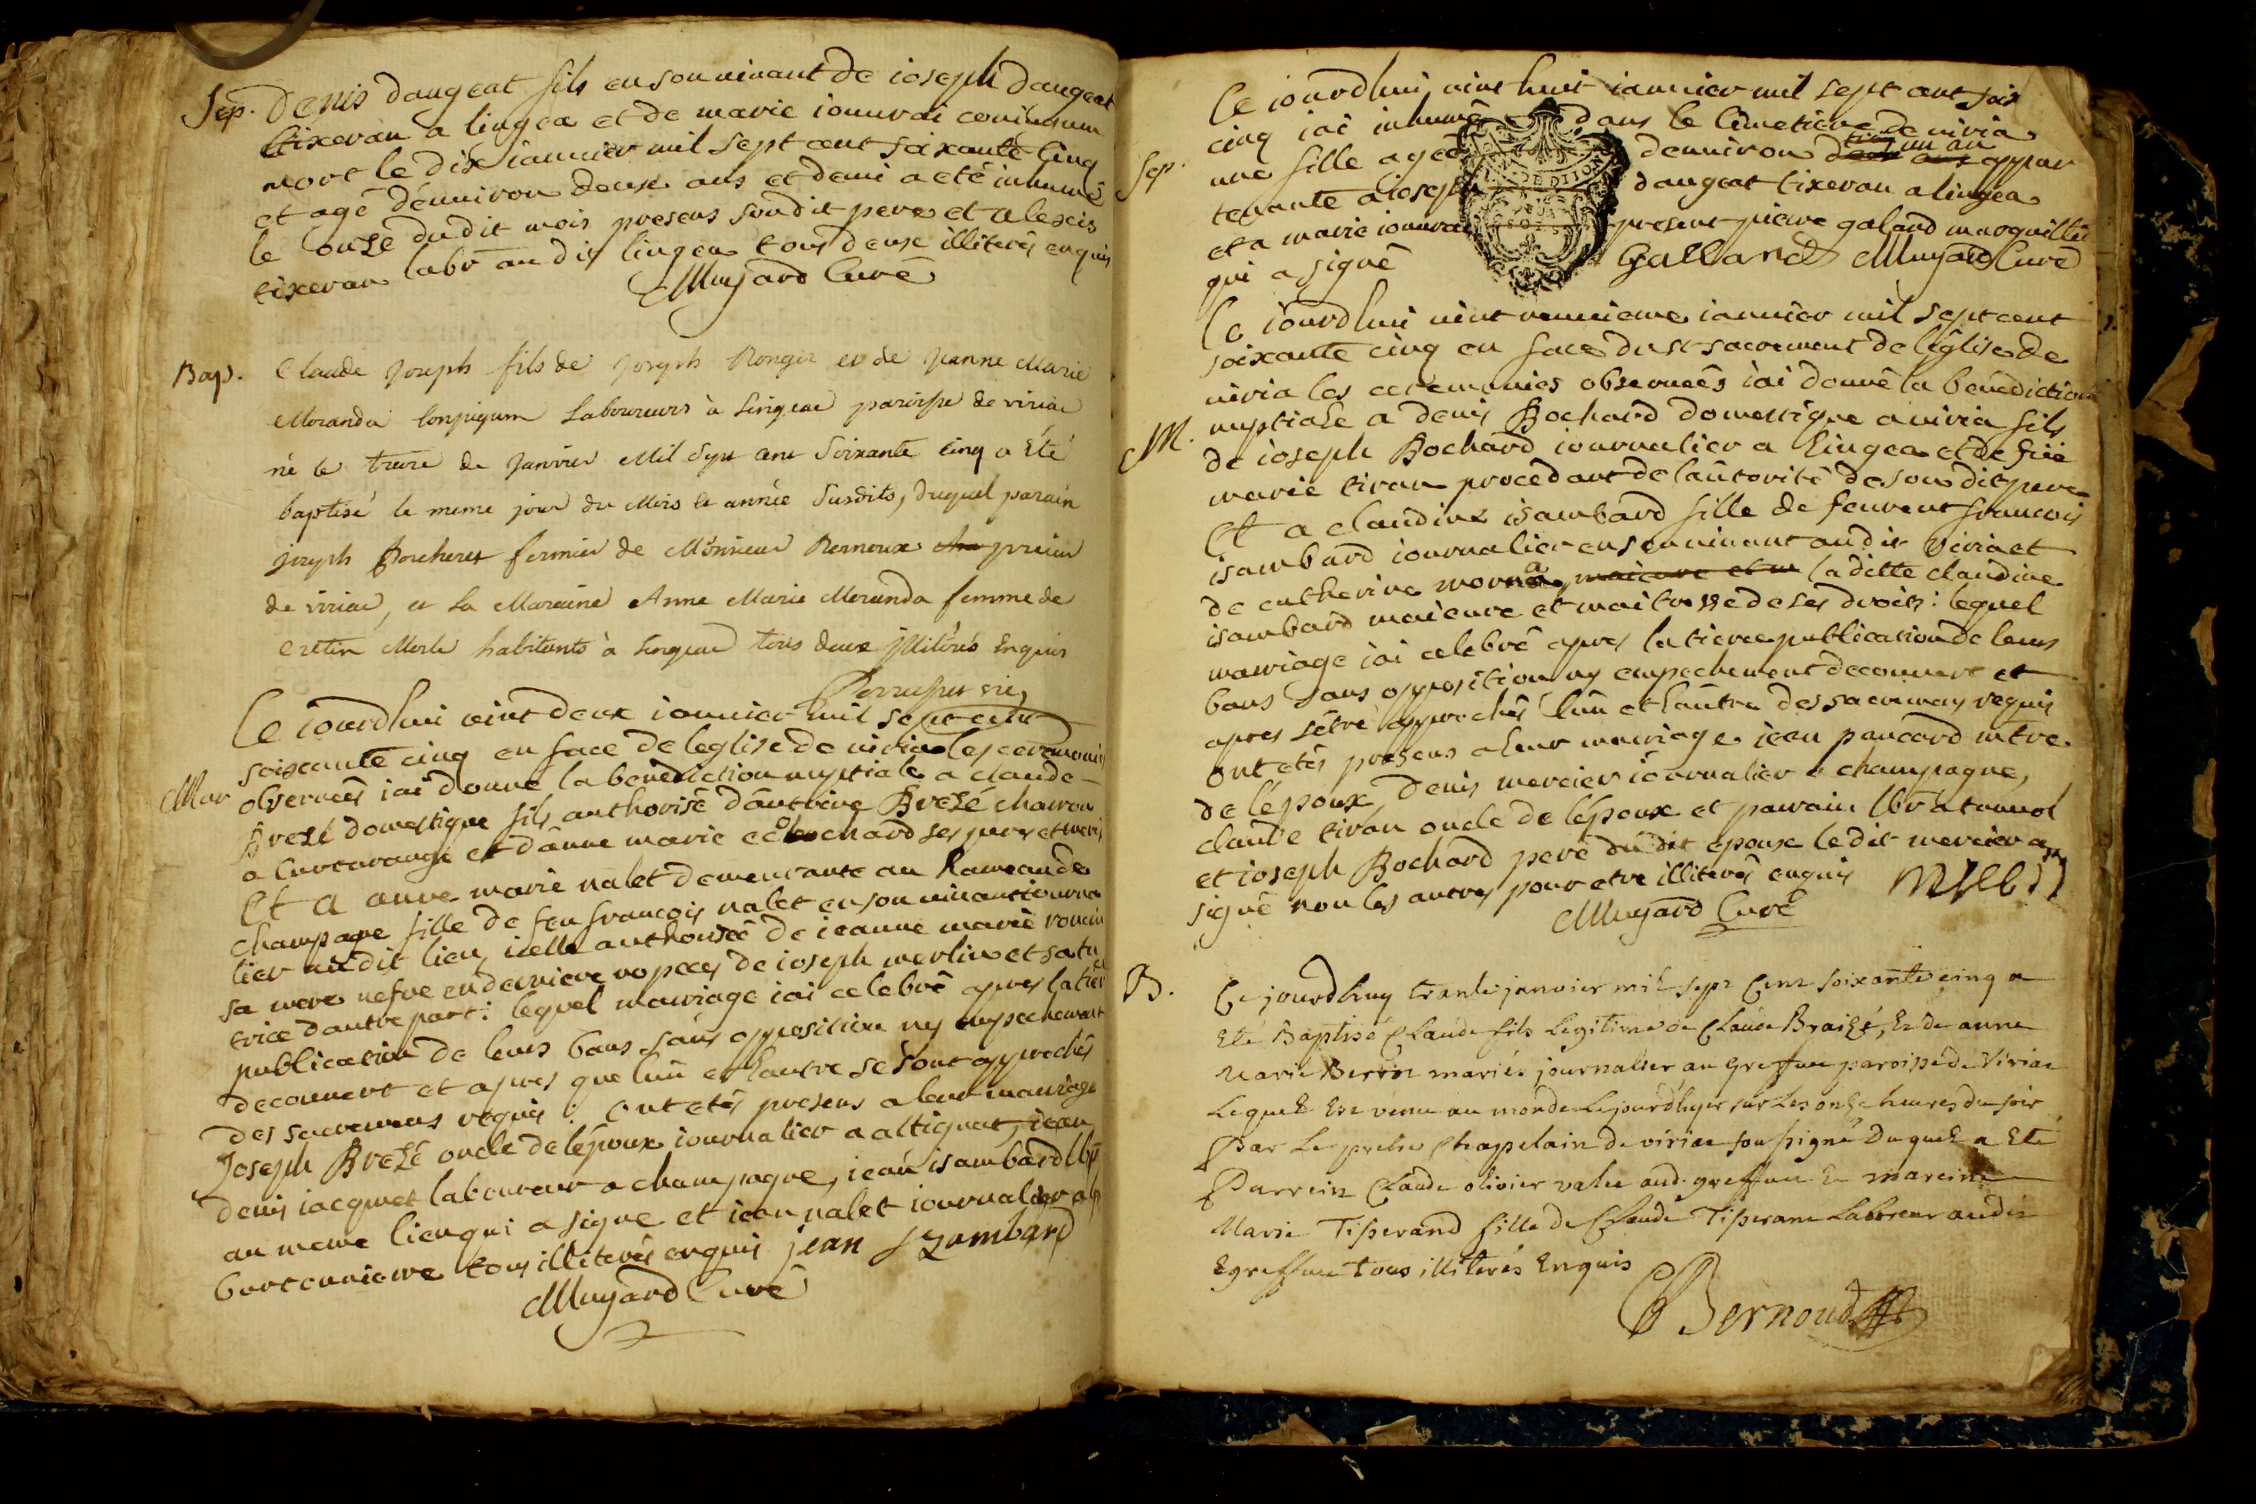 Sep. Denis dangeat fils en son vivant de ioseph dangeat
tixeran a lingea et de marie iouvrai coniugum
mort le dix ianvier mil sept cent soixante cinq
et agé d'environ deux ans et demi a eté inhumé
le onze du dit mois presens son dit pere et alexis
tixeran labr au dit lingea tous deux illiterés enquis
Mujard Curé
Bap. Claude Joseph fils de Joseph Rongier et de Jeanne Marie
Moranda Conjugum Laboureurs à Lingeat paroisse de viriac
né le treize de Janvier Mil Sept cent Soixante cinq a Eté
baptisé le meme jour du Mois et année Susdits, duquel parain
joseph Bocheret fermier de Monsieur Remoux prieur
de viriac, et La Maraine Anne Marie Moranda femme de
Merle habitants à Lingeac tous deux illiterés Enquis
Ce iourdhui vint deux ianvier mil sept cent
soixante cinq en face de leglise de viria les ceremonies
Mar observees iai donné la benediction nuptiale a claude
Brezé domestique fils authorisé d'antoine Brezé charon
a Curtarangé et d'anne marie Bochard ses pere et mere
Et a anne marie nalet demeurante au hameau de
champagne fille de feu francois nalet en son vivant iourna
lier au dit lieu, icelle authorisée de ieanne marie
sa mere vefve en derniere nopces de ioseph merlin et sa tu
trice d'autre part : lequel mariage iai celebré apres la tierce
publication de leurs bans sans opposition ny empechement
decouvert et apres que l'un et l'autre se sont approchés
des sacremens requis : ont etés presens a leur mariage
Joseph Brezé oncle de l'époux iournalier a attignat, iean
denis iacquet laboureur a champagne, iean isambard labr
au meme lieu qui a signé et iean nalet iournalier a
tous illiterés enquis jean Izambard
Mujard Curé
Ce iourdhui vint huit ianvier mil sept cent soix
cinq iai inhumé dans le Cimetiere de viria
Sep. une fille agée d'environ un an appar
tenante a ioseph dangeat tixeran a lingea
et a marie iouvrai present pierre galand marguillier
qui a signé Galland Mujard Curé
Ce iourdhui vint neuvieme ianvier mil sept cent
soixante cinq en face du st sacrement de l'église de
viria les ceremonies observeés iai donné la bénédiction
M. nuptiale a denis Bochard domestique a viria fils
de ioseph Bochard iournalier a Lingea et de feüe
marie tiran procedant de l'autorité de son dit pere
Et a claudine isambard fille de feu francois
isambard iournalier en son vivant au dit viria et
de catherine morna, maieure et m la ditte claudine
isambard maieure et maitresse de ses droits : lequel
mariage iai celebré apres la tierce publication de leurs
bans sans opposition ny empechement decouvert et
apres s'etre approchés l'un et l'autre des sacremens requis
ont etés presens a leur mariage iean pancard
de l'époux, denis mercier iournalier a champagne,
claude tiran oncle de l'époux et parain labr a tannol
et ioseph Bochard pere du dit epoux le dit mercier a
signé non les autres pour etre illiterés enquis
Mujard Curé
B. Ce jourdhuy trante janvier mil sept Cent soixante cinq a
Eté Baptisé Claude fils Legitime de Claude Braizé, Et de anne
Marie Berrin mariés journalier au Greffun paroisse de Viriac
Lequel Est venu au monde Le jourdhyer sur Les onze heures du soir
Par Le pretre Chapelain de viriac soussigné Duquel a Eté
Parrein Claude olivier valet aud. greffun Et mareine
Marie Tisserand fille de Claude Tisseram Laboreur audit
Egreffun Tous illiterés Enquis
Bernoud